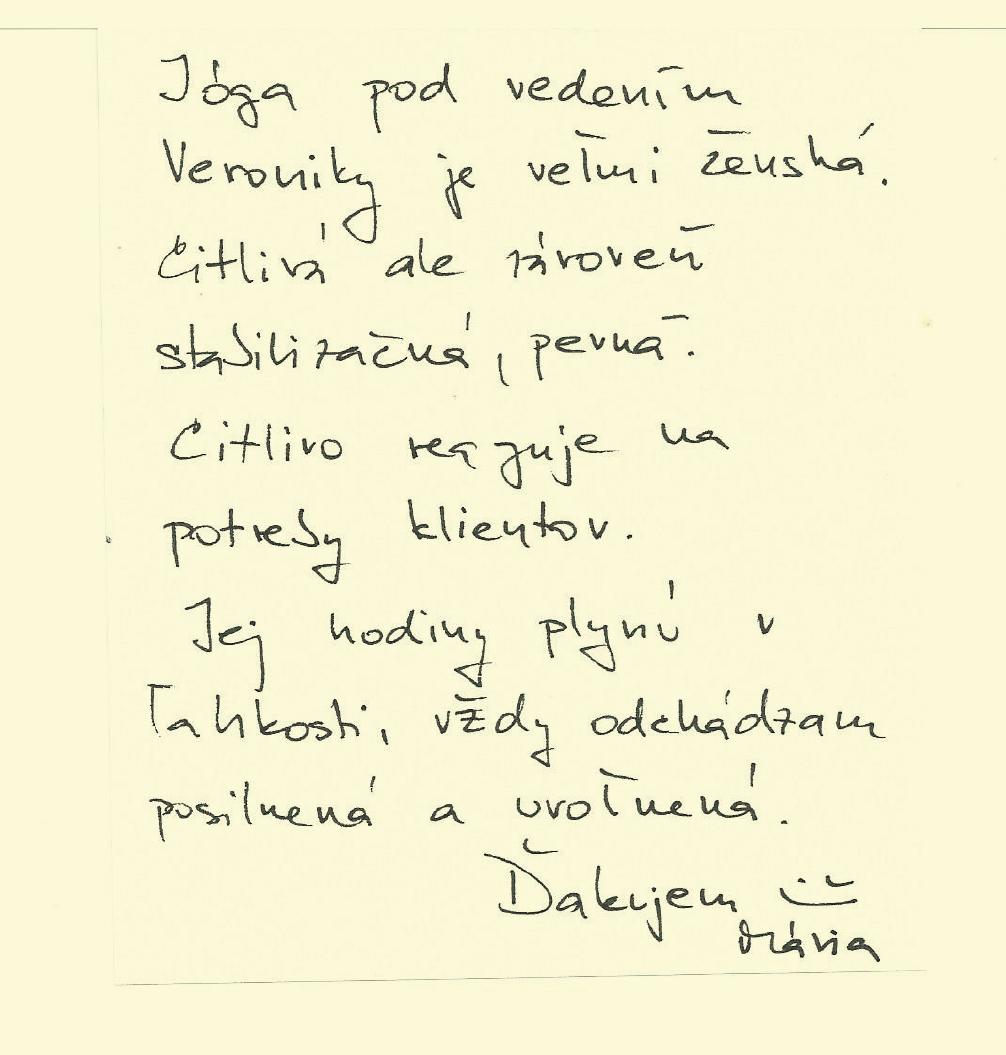 Jóga pod vedením
Veroniky je veľmi ženská.
Citlivá ale zároveň
stabilizačná, pevná.
Citlivo reaguje na
potreby klientov.
Jej hodiny plynú v
ľahkosti, vždy odchádzam
posilnená a uvoľnená.
Ďakujem :)
Mária